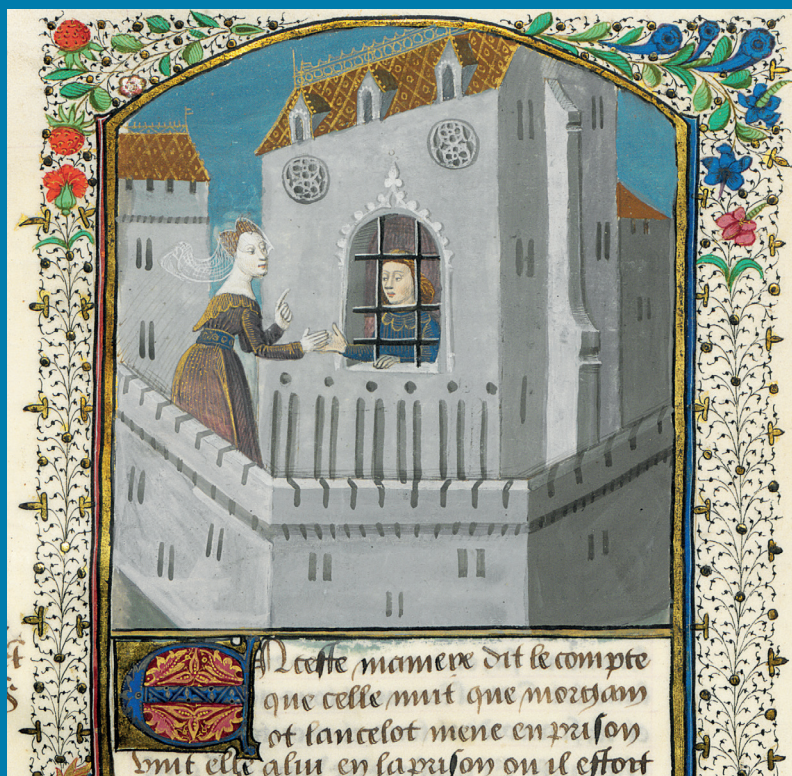 En ceste maniere dit le compte
que celle nuit que morgain
ot lancelot mene en prison
vint elle a lui en la prison ou il estoit